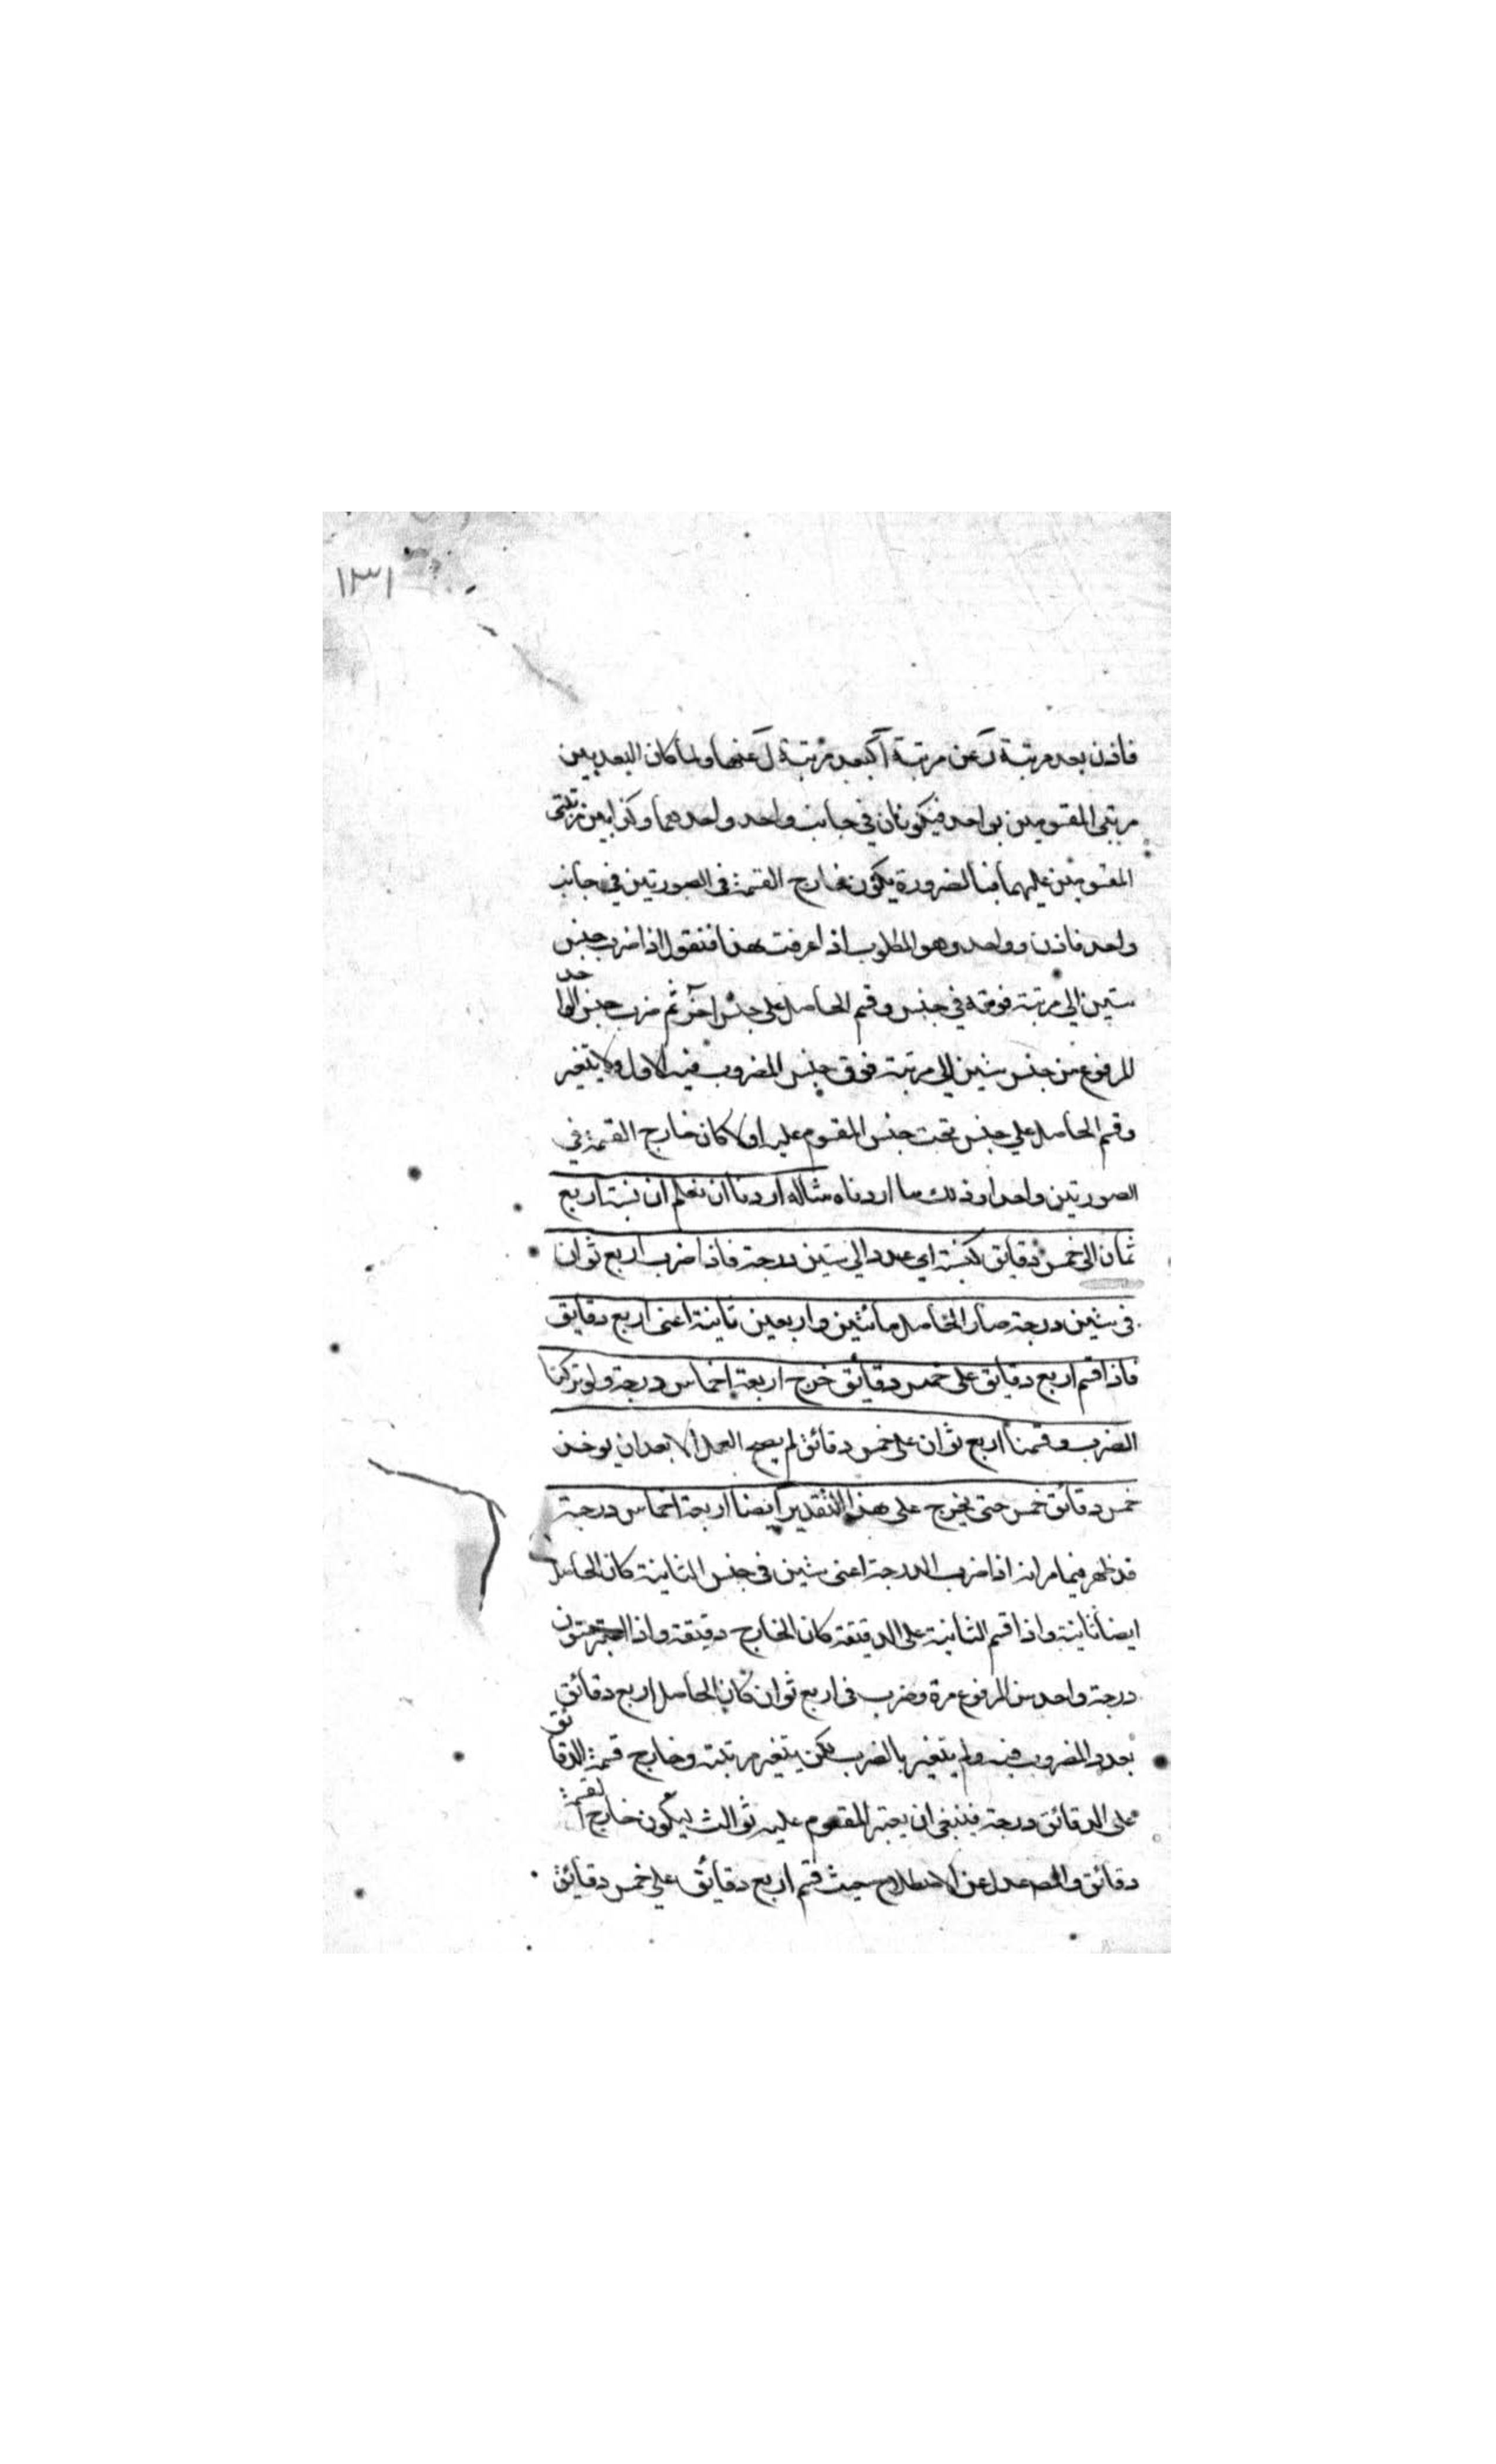 ١٣١
فاذن بعد مرتبة ك عن مرتبة آ كبعد مرتبة ل عنها ولما كان البعد بين
مرتبتى المقسومين بواحد فيكونان في جانب واحد واحدهما وكذا بين مرتبتى
المقسومين عليهما فبالضرورة يكون خارج القسمة فى الصورتين في جانب
واحد فاذن وواحد وهو المطلوب اذا عرفت هذا فنقول اذا ضرب جنس
ستين الى مرتبة فوقه في جنس وقسم الحاصل على جنس آخر ثم ضرب جنس الواحد
المرفوع من جنس ستين الى مرتبة فوق جنس المضروب فيه الاول ولا يتغير
وقسم الحاصل علي جنس تحت جنس المقسوم عليه اولا كان خارج القسمة في
الصورتين واحدا وذلك ما اردناه مثاله اردنا ان نعلم ان نسبة اربع
ثمان الى خمس دقايق كنسبة اي عدد الي ستين درجة فاذا ضرب اربع ثوان
فى ستين درجة صار الحاصل مائتين واربعين ثانية اعنى اربع دقايق
فاذا قسم اربع دقايق على خمس دقائق خرج اربعة اخماس درجة ولو تركنا
الضرب وقسمنا اربع ثوان على خمس دقائق لم يصح العمل الا بعد ان يوخذ
خمس دقائق خمس حتى يخرج على هذا التقدير ايضا اربعة اخماس درجة
قد ظهر فيما مر انه اذا ضرب الدرجة اعنى ستين فى جنس الثانية كان الحاصل
ايضا ثانية واذا قسم الثانية على الدقيقة كان الخارج دقيقة واذا ستون
درجة واحد من المرفوع مرة وضرب فى اربع ثوان كان الحاصل اربع دقائق
بعدد المضروب فيه ولم يتغير بالضرب لكن يتغير مرتبته وخارج قسمة الدقائق
على الدقائق درجة فينبغى ان يعتبر المقسوم عليه ثوالث ليكون خارج القسمة
دقائق عن الاصطلاح حيث قسم اربع دقائق علي خمس دقائق